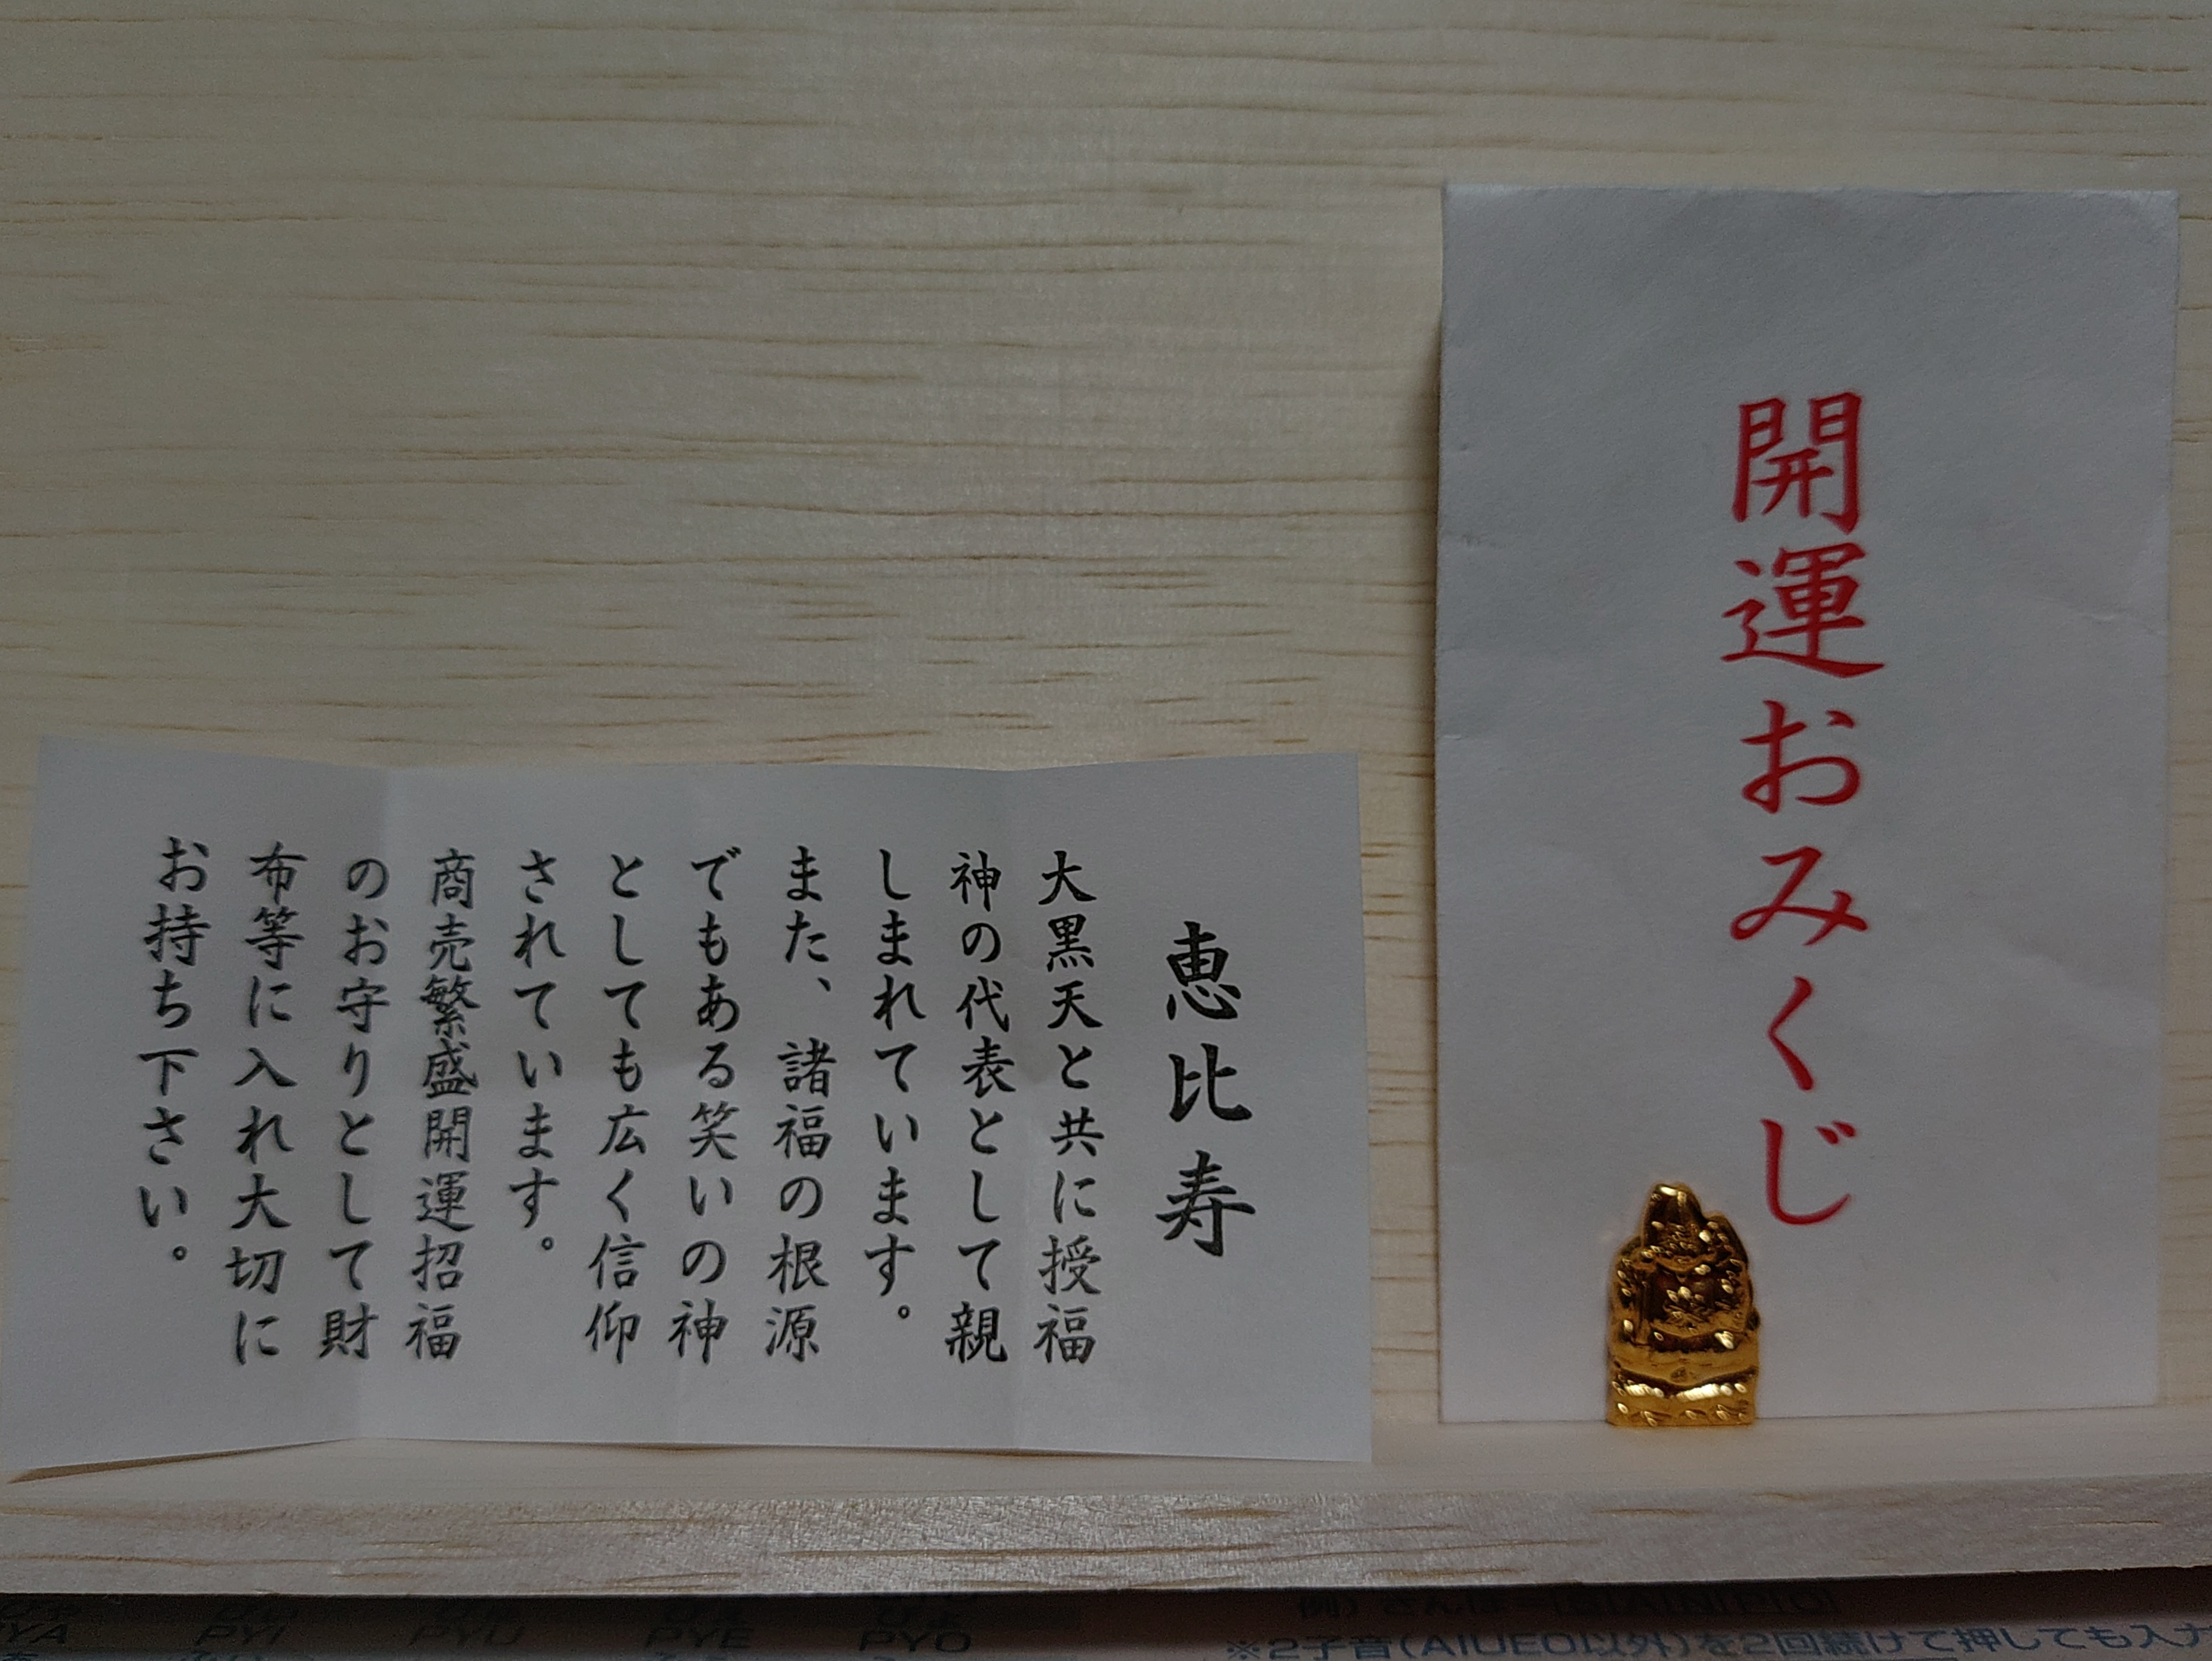 開運おみくじ
恵比寿
大黒天と共に授福
神の代表として親
しまれています。
また、諸福の根源
でもある笑いの神
としても広く信仰
されています。
商売繁盛開運招福
のお守りとして財
布等に入れ大切に
お持ち下さい。
PYI
PYU
PYE
PYO
※2子音(AIUEO以外)を2回続けて押しても入